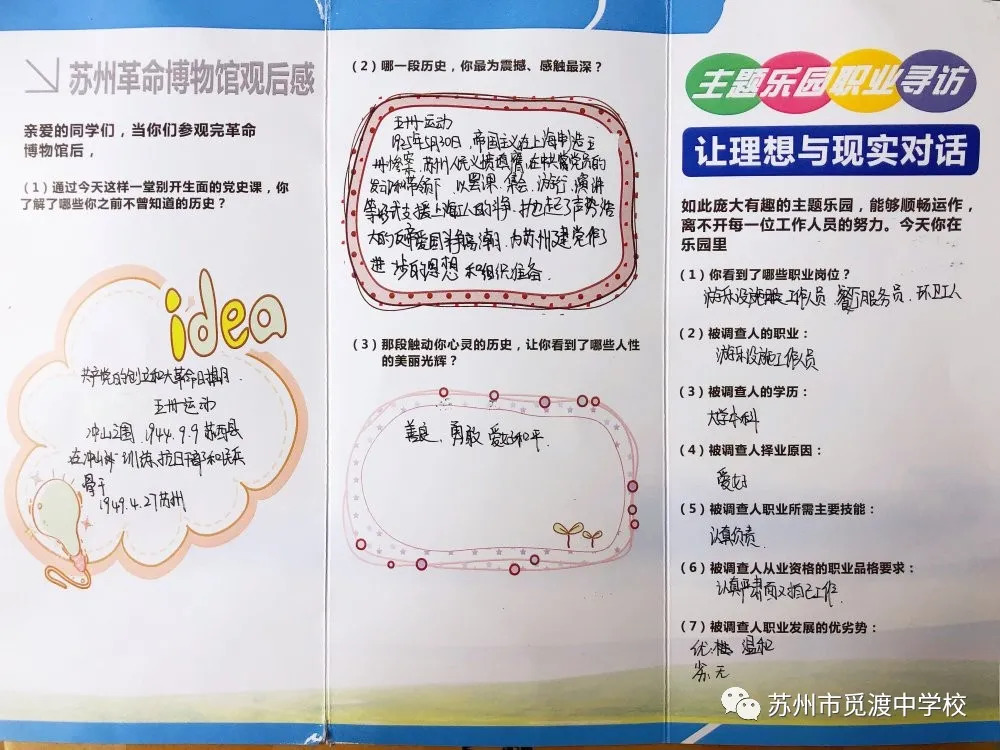 苏州革命博物馆观后感
亲爱的同学们，当你们参观完革命
博物馆后，
（1）通过今天这样一堂别开生面的党史课，你
了解了哪些你之前不曾知道的历史？
idea
共产党的创立和大革命时期
五卅运动
冲山之围 1944.9.9 苏西县
在冲山 训练抗日干部和民兵
骨干
1949.4.27苏州
（2）哪一段历史，你最为震撼、感触最深？
五卅运动
1925年5月30日，帝国主义在上海制造五
卅惨案，苏州人民义愤填膺，在中共党员的
发动和带领下，以罢课、集会、游行、演讲
等形式支援上海工人的斗争，掀起了声势浩
大的反帝爱国斗争高潮，为苏州建党作了
进步的思想和组织准备．
（3）那段触动你心灵的历史，让你看到了哪些人性
的美丽光辉？
善良、勇敢 爱好和平．
主题乐园职业寻访
让理想与现实对话
如此庞大有趣的主题乐园，能够顺畅运作，
离不开每一位工作人员的努力。今天你在
乐园里
（1）你看到了哪些职业岗位？
游乐设施工作人员、餐厅服务员、环卫工人
（2）被调查人的职业：
游乐设施工作人员
（3）被调查人的学历：
大学本科
（4）被调查人择业原因：
爱好
（5）被调查人职业所需主要技能：
认真负责
（6）被调查人从业资格的职业品格要求：
认真严肃面对自己工作．
（7）被调查人职业发展的优劣势：
优： 温和
劣：无
苏州市觅渡中学校